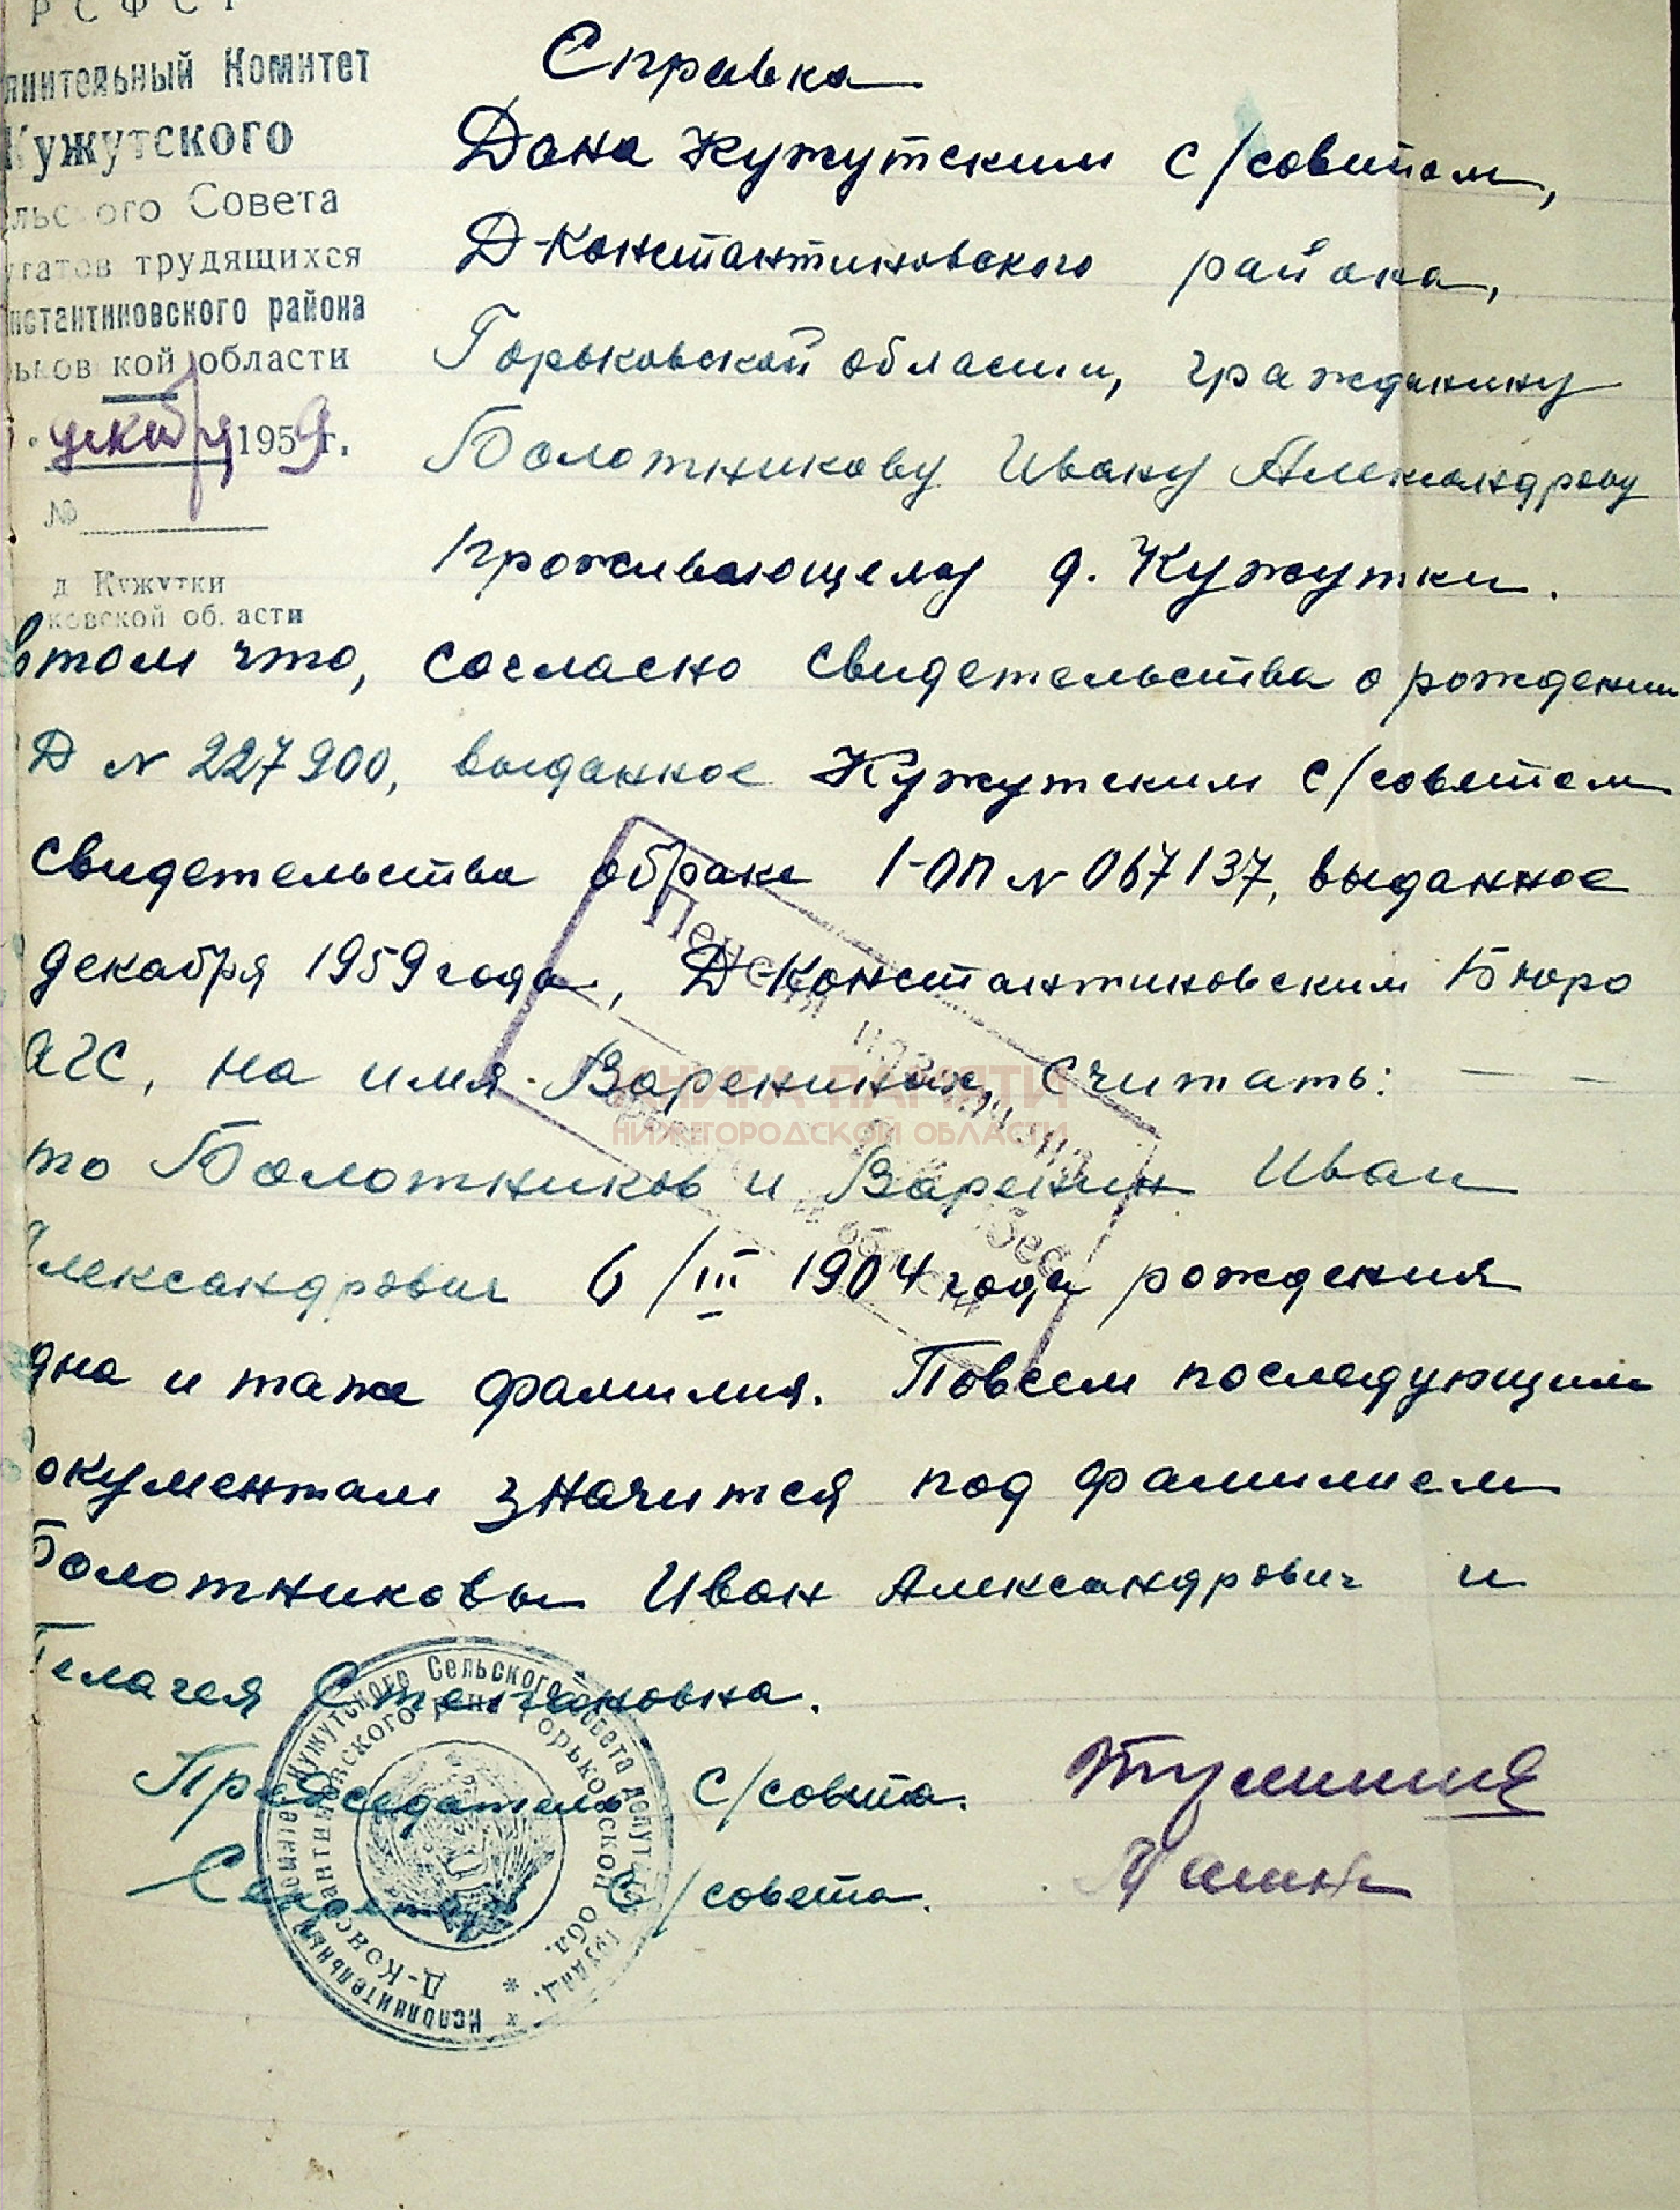 РСФСР
лнительный Комитет
Кужутского
льского Совета
утатов трудящихся
нстантиновского района
ьков кой области
декабря 1959г.
№
д Кужутки
ковской об. асти
Справка
Дана Кужутским с/советом,
Д-Константиновского района,
Горьковской области, гражданину
Болотникову Ивану Александрову
проживающему д. Кужутки.
в том что, согласно свидетельства о рождении
Д N 227900, выданное Кужутским с/советом
свидетельства обраке 1-ОП N 067137, выданное
декабря 1959 года, Д-Константиновским Бюро
АГС, на имя Варениных, считать: — —
то Болотников и Варенин Иван
лександрович 6/III 1904 года рождения
дна и таже фамилия. Повсем последующим
окументам значится под фамилием
Болотниковы Иван Александрович и
Пелагея Степановна.
Председатель с/совета.
Секретарь с/совета.
Пенсия назначена
КНИГА ПАМЯТИ
НИЖЕГОРОДСКОЙ ОБЛАСТИ
Исполнительный Комитет Кужутского Сельского Совета депутатов трудящ.
Д-Константиновского р-на Горьковской обл.